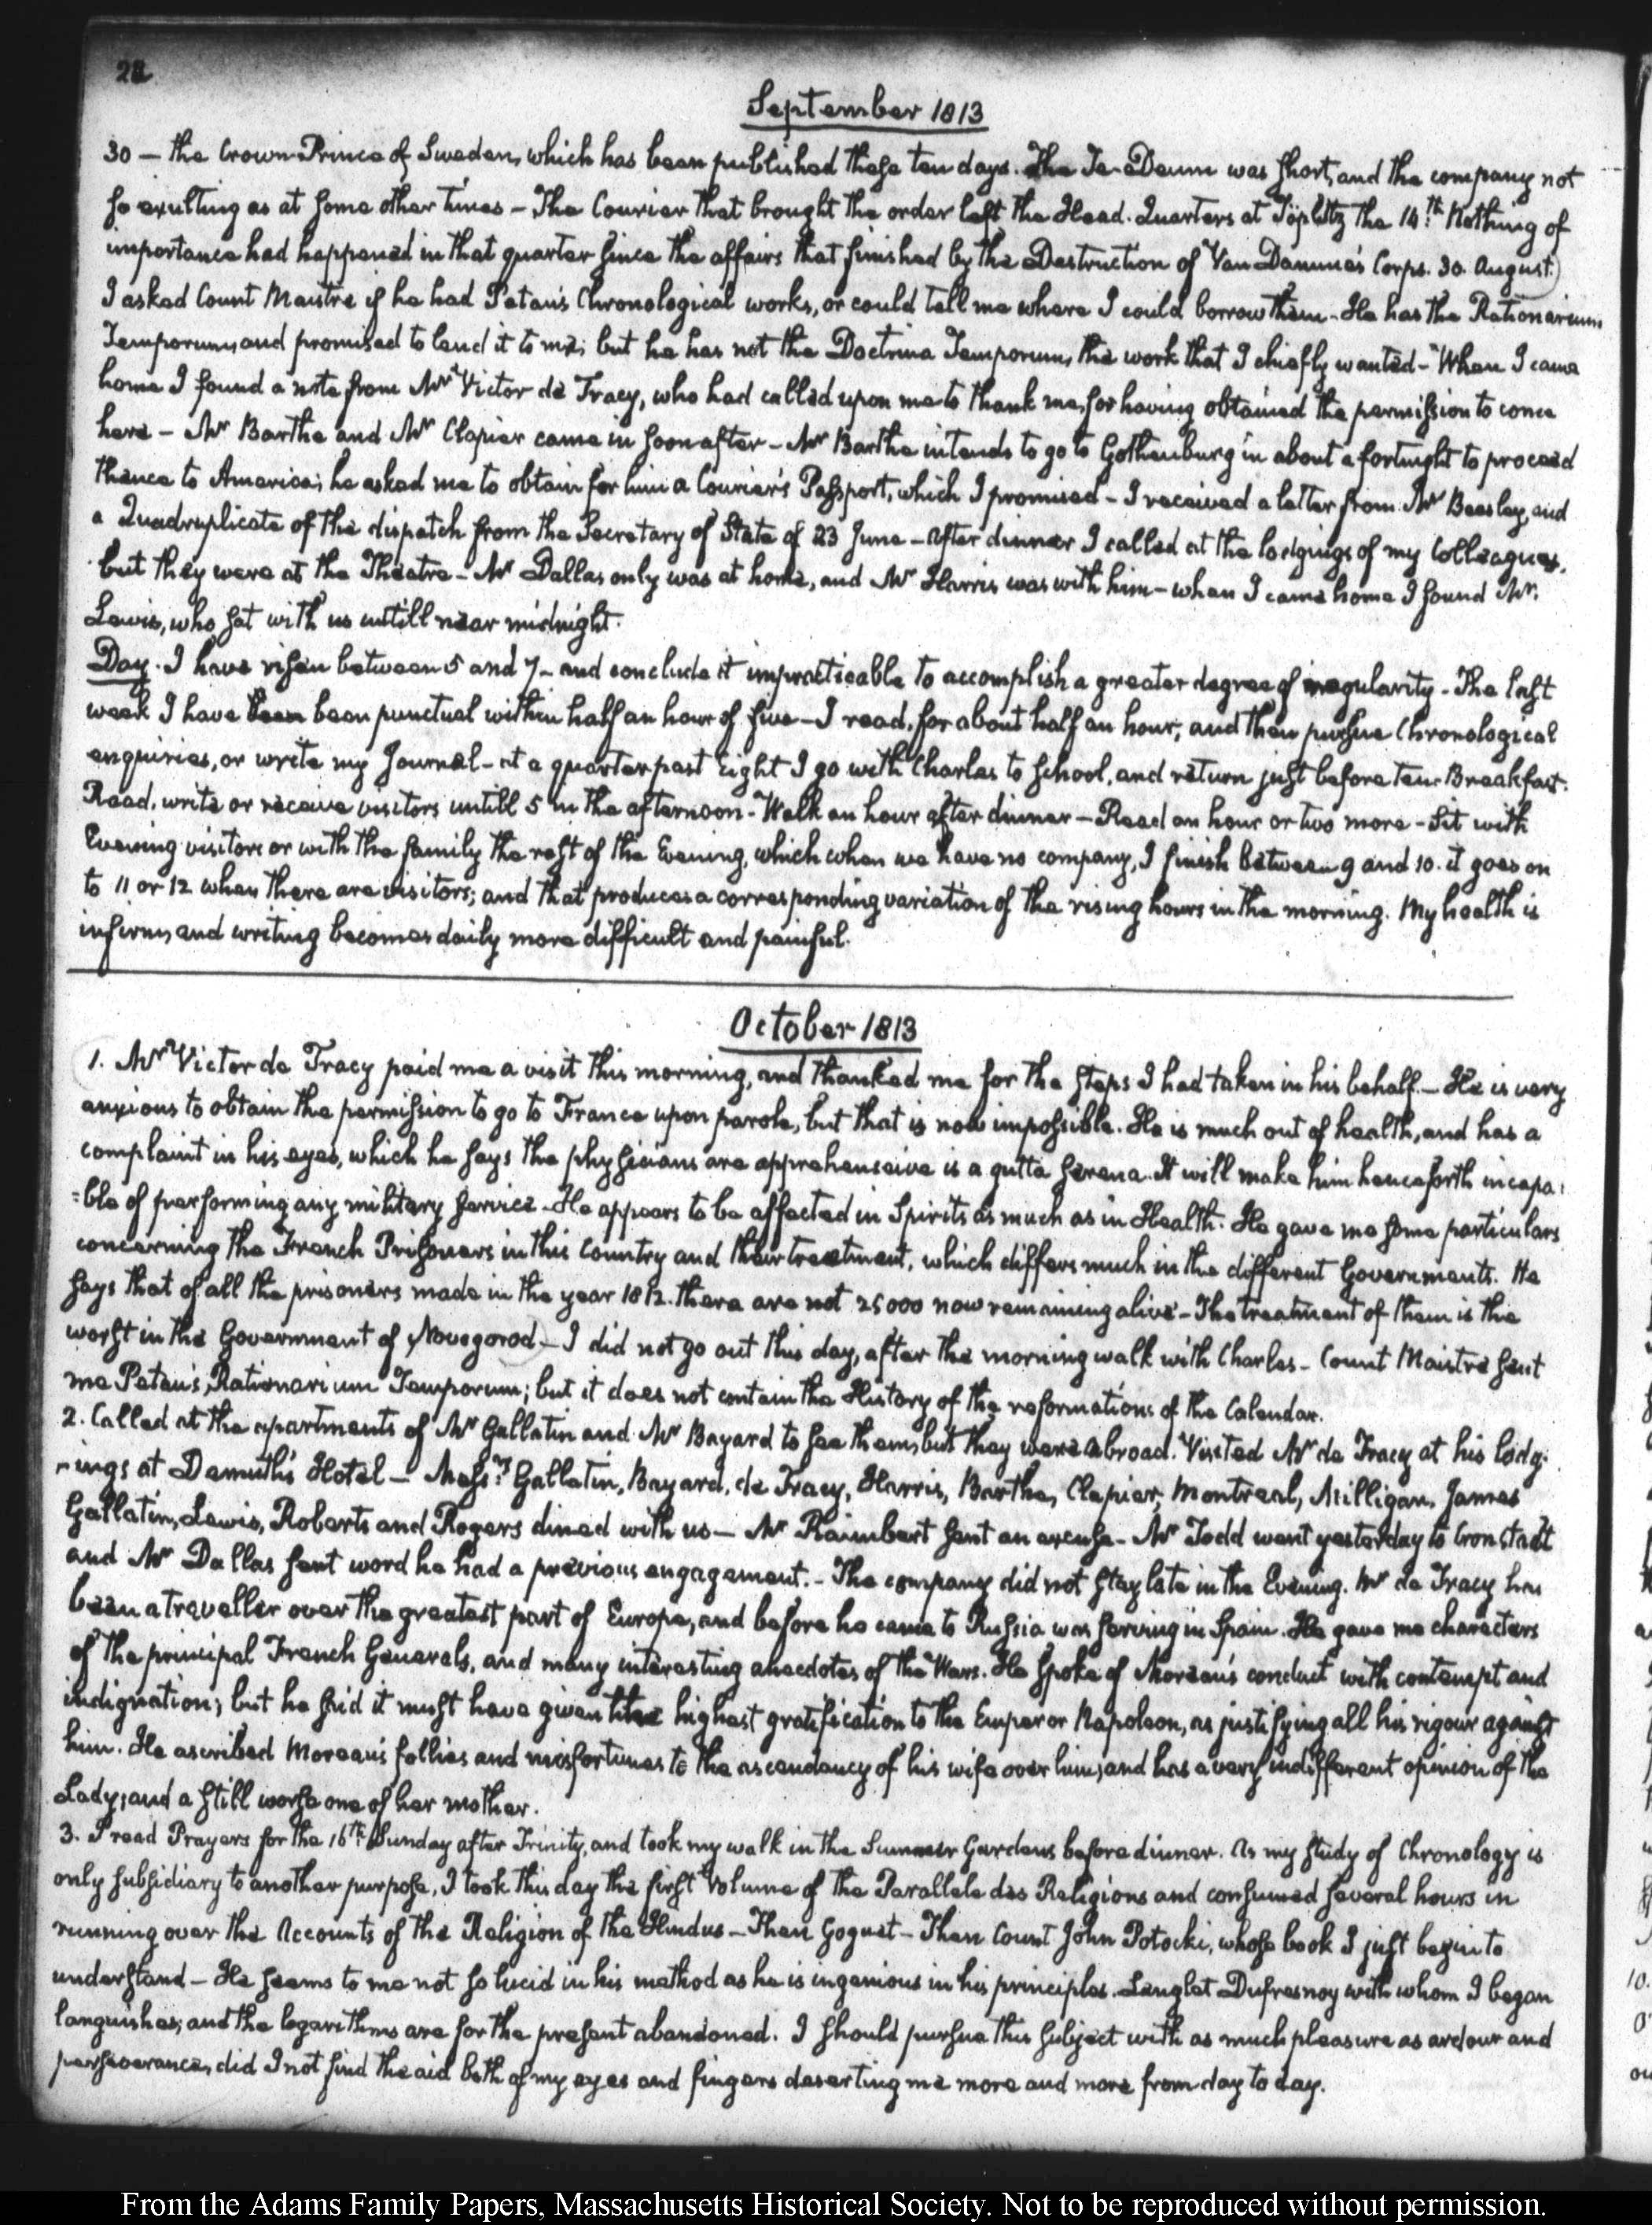 22
September 1813
30 — the Crown Prince of Sweden, which has been published these ten days. The Te-Deum was short, and the company not
so exulting as at some other times – The Courier that brought the order left the Head-Quarters at Töplitz the 14th. Nothing of
importance had happened in that quarter since the affairs that finished by the Destruction of Van Damme's Corps. 30. August.)
I asked Count Maistre if he had Petau's Chronological works, or could tell me where I could borrow them – He has the Rationarium
Temporum, and promised to lend it to me; but he has not the Doctrina Temporum, the work that I chiefly wanted – When I came
home I found a note from Mr Victor de Tracy, who had called upon me to thank me, for having obtained the permission to come
here – Mr Barthe and Mr Clapier came in soon after – Mr Barthe intends to go to Gothenburg in about a fortnight to proceed
thence to America; he asked me to obtain for him a Courier's Passport, which I promised – I received a letter from Mr Beasley, and
a Quadruplicate of the dispatch from the Secretary of State of 23 June – After dinner I called at the lodgings of my Colleagues,
but they were at the Theatre – Mr Dallas only was at home, and Mr Harris was with him – when I came home I found Mr.
Lewis, who sat with us untill near midnight.
Day. I have risen between 5 and 7 – and conclude it impracticable to accomplish a greater degree of regularity – The last
week I have been punctual within half an hour of five – I read, for about half an hour, and then pursue Chronological
enquiries, or write my Journal – at a quarter past eight I go with Charles to school, and return just before ten. Breakfast.
Read, write or receive visitors untill 5 in the afternoon – Walk an hour after dinner – Read an hour or two more – Sit with
Evening visitors or with the family the rest of the Evening, which when we have no company, I finish between 9 and 10. it goes on
to 11 or 12 when there are visitors; and that produces a corresponding variation of the rising hours in the morning. My health is
infirm, and writing becomes daily more difficult and painful.
October 1813
1. Mr Victor de Tracy paid me a visit this morning, and thanked me for the steps I had taken in his behalf. – He is very
anxious to obtain the permission to go to France upon parole, but that is now impossible. He is much out of health, and has a
complaint in his eyes, which he says the physicians are apprehensive is a gutta serena. It will make him henceforth incapa:
:ble of performing any military service – He appears to be affected in Spirits as much as in Health. He gave me some particulars
concerning the French Prisoners in this Country and their treatment, which differs much in the different Governments. He
says that of all the prisoners made in the year 1812. there are not 25000 now remaining alive – The treatment of them is the
worst in the Government of Novogorod – I did not go out this day, after the morning walk with Charles – Count Maistre sent
me Petau's Rationarium Temporum; but it does not contain the History of the reformations of the Calendar.
2. Called at the apartments of Mr Gallatin and Mr Bayard to see them, but they were abroad. Visited Mr de Tracy at his lodg-
-ings at Demuth's Hotel – Messrs. Gallatin, Bayard, de Tracy, Harris, Barthe, Clapier, Montreal, Milligan, James
Gallatin, Lewis, Roberts and Rogers dined with us – Mr Raimbert sent an excuse – Mr Todd went yesterday to Cronstadt
and Mr Dallas sent word he had a previous engagement. – The company did not stay late in the Evening. Mr de Tracy has
been a traveller over the greatest part of Europe, and before he came to Russia was serving in Spain. He gave me characters
of the principal French Generals, and many interesting anecdotes of the Wars. He spoke of Moreau's conduct with contempt and
indignation; but he said it must have given the highest gratification to the Emperor Napoleon, as justifying all his rigour against
him. He ascribed Moreau's follies and misfortunes to the ascendancy of his wife over him, and has a very indifferent opinion of the
Lady, and a still worse one of her mother.
3. I read Prayers for the 16th. Sunday after Trinity, and took my walk in the Summer Gardens before dinner. As my study of Chronology is
only subsidiary to another purpose, I took this day the first Volume of the Parallele des Religions and consumed several hours in
running over the Accounts of the Religion of the Hindus – Then Goguet – Then Count John Potocki, whose book I just begin to
understand – He seems to me not so lucid in his method as he is ingenious in his principles. Lenglet Dufresnoy with whom I began
languishes; and the logarithms are for the present abandoned. I should pursue this subject with as much pleasure as ardour and
perseverance, did I not find the aid both of my eyes and fingers deserting me more and more from day to day.
From the Adams Family Papers, Massachusetts Historical Society. Not to be reproduced without permission.